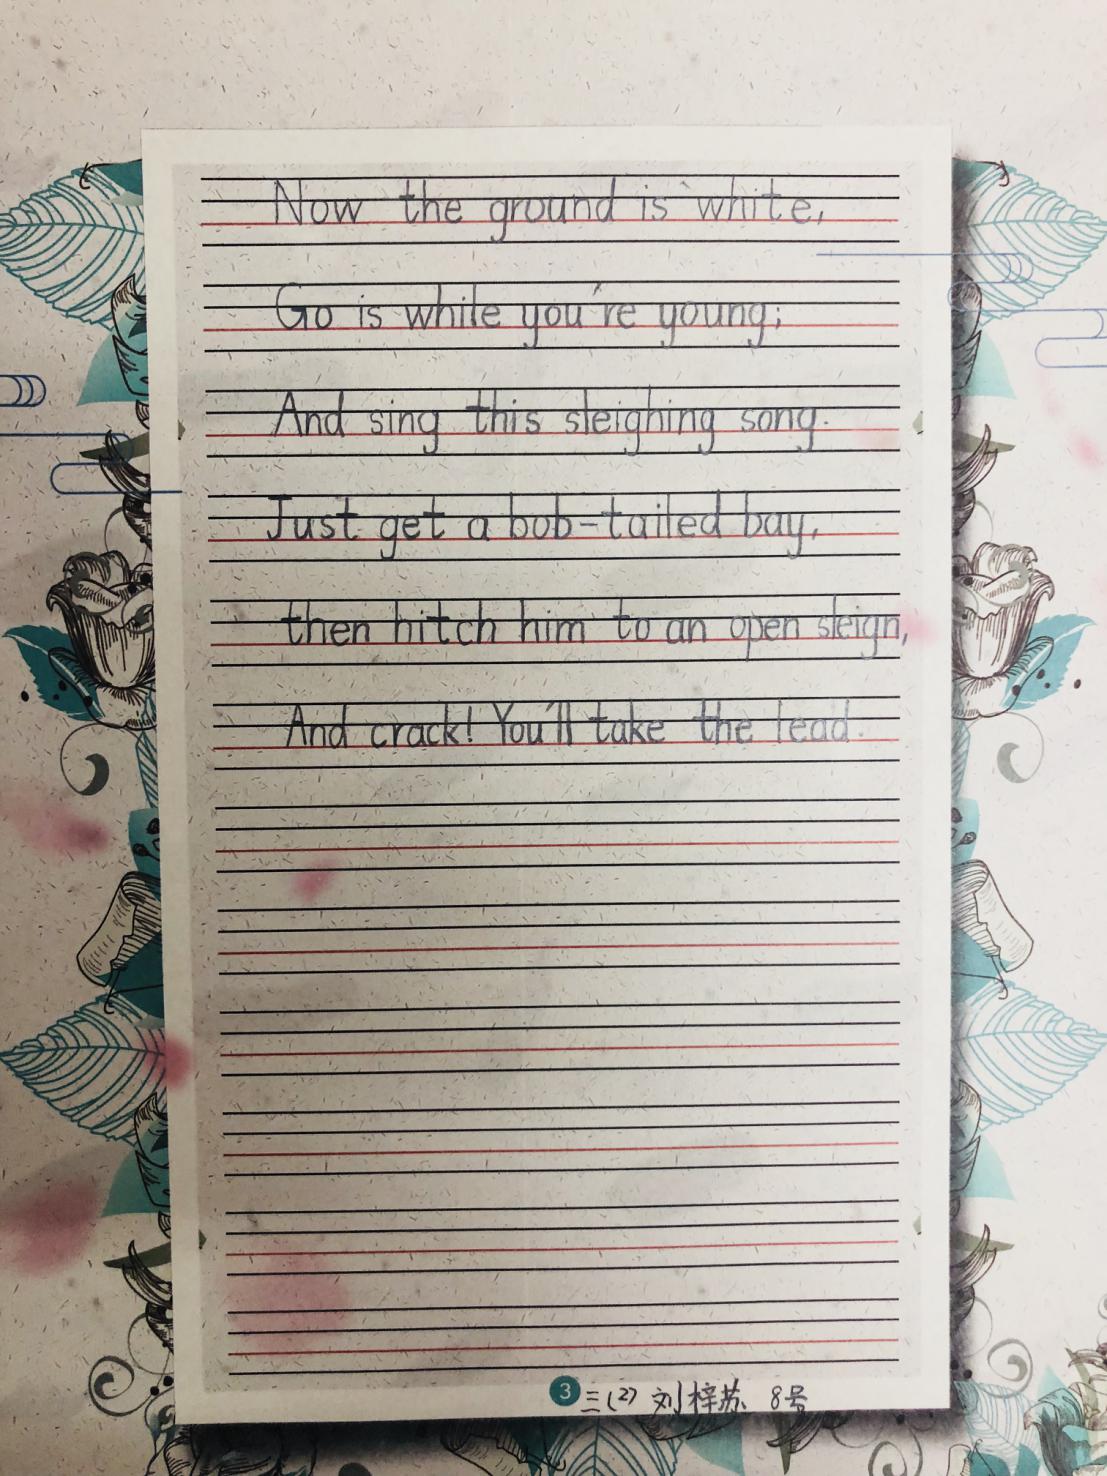 Now the ground is white,
Go is while you're young;
And sing this sleighing song.
Just get a bob-tailed bay,
then hitch him to an open sleign,
And crack! You'll take the lead.
3 三(2) 刘梓苏 8号